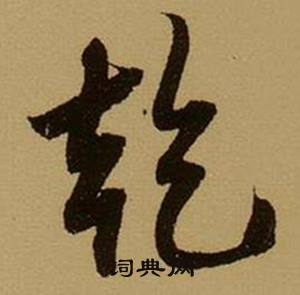 乾
词典网